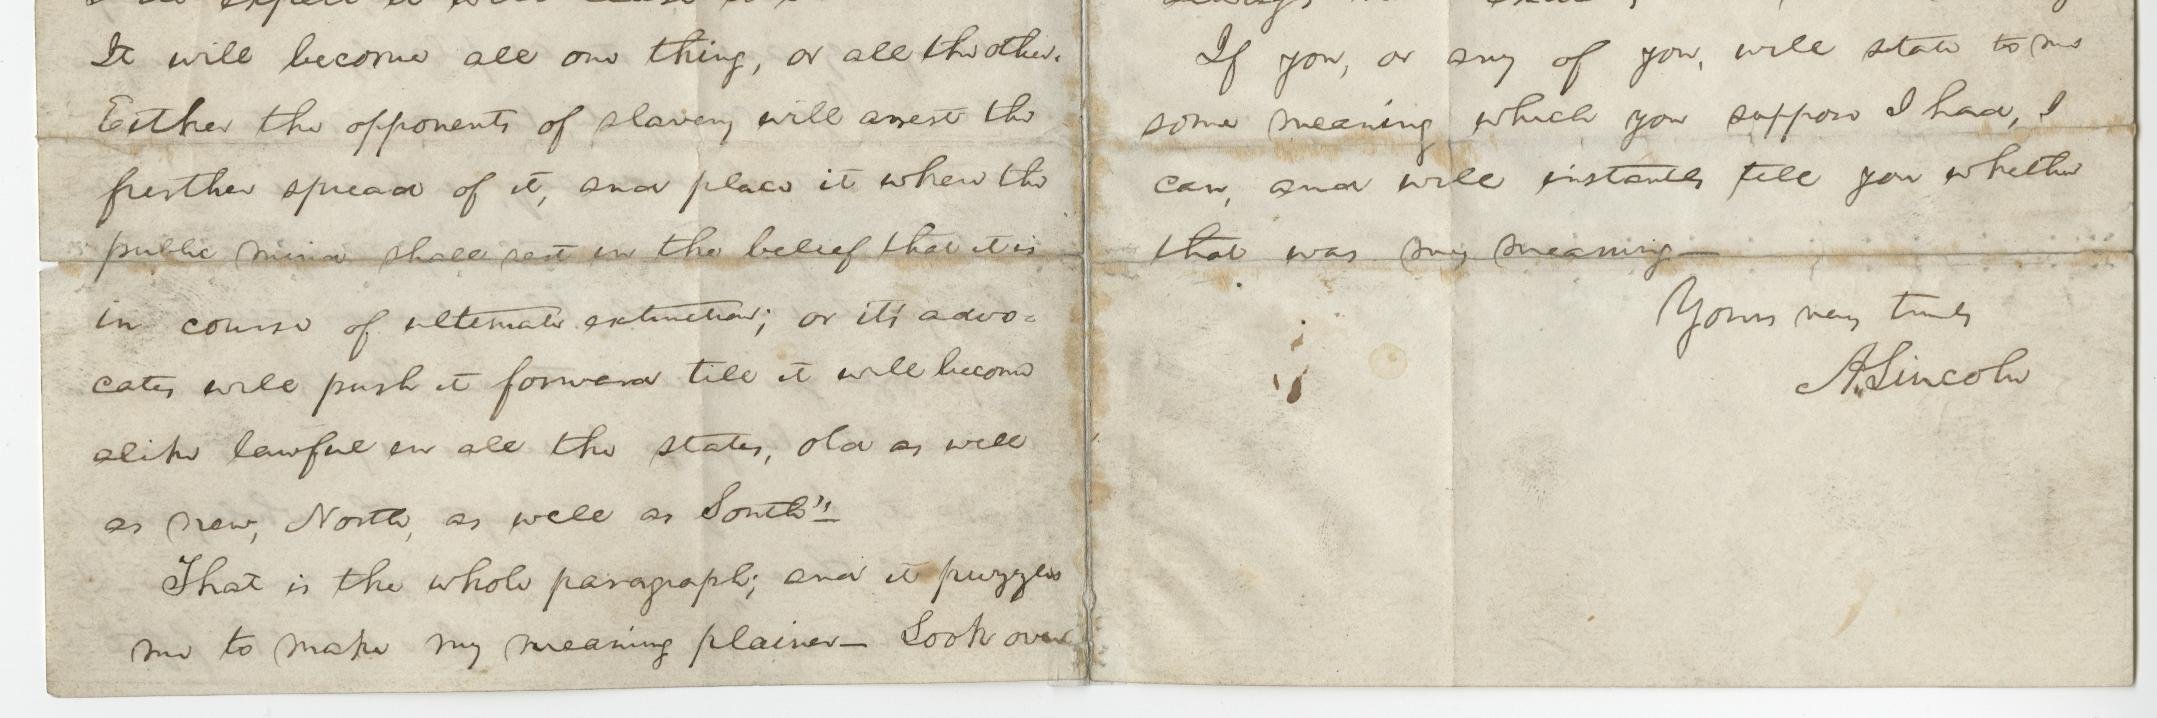 It will become all one thing, or all the other.
Either the opponents of slavery will arrest the
further spread of it, and place it where the
public mind shall rest in the belief that it is
in course of ultimate extinction; or it's advo-
cates will push it forward till it will become
alike lawful in all the states, old as well
as new, North, as well as South"
That is the whole paragraph; and it puzzles
me to make my meaning plainer— Look over
If you, or any of you, will state to me
some meaning which you suppose I had, I
can, and will instantly tell you whether
that was my meaning—
Yours very truly
A. Lincoln